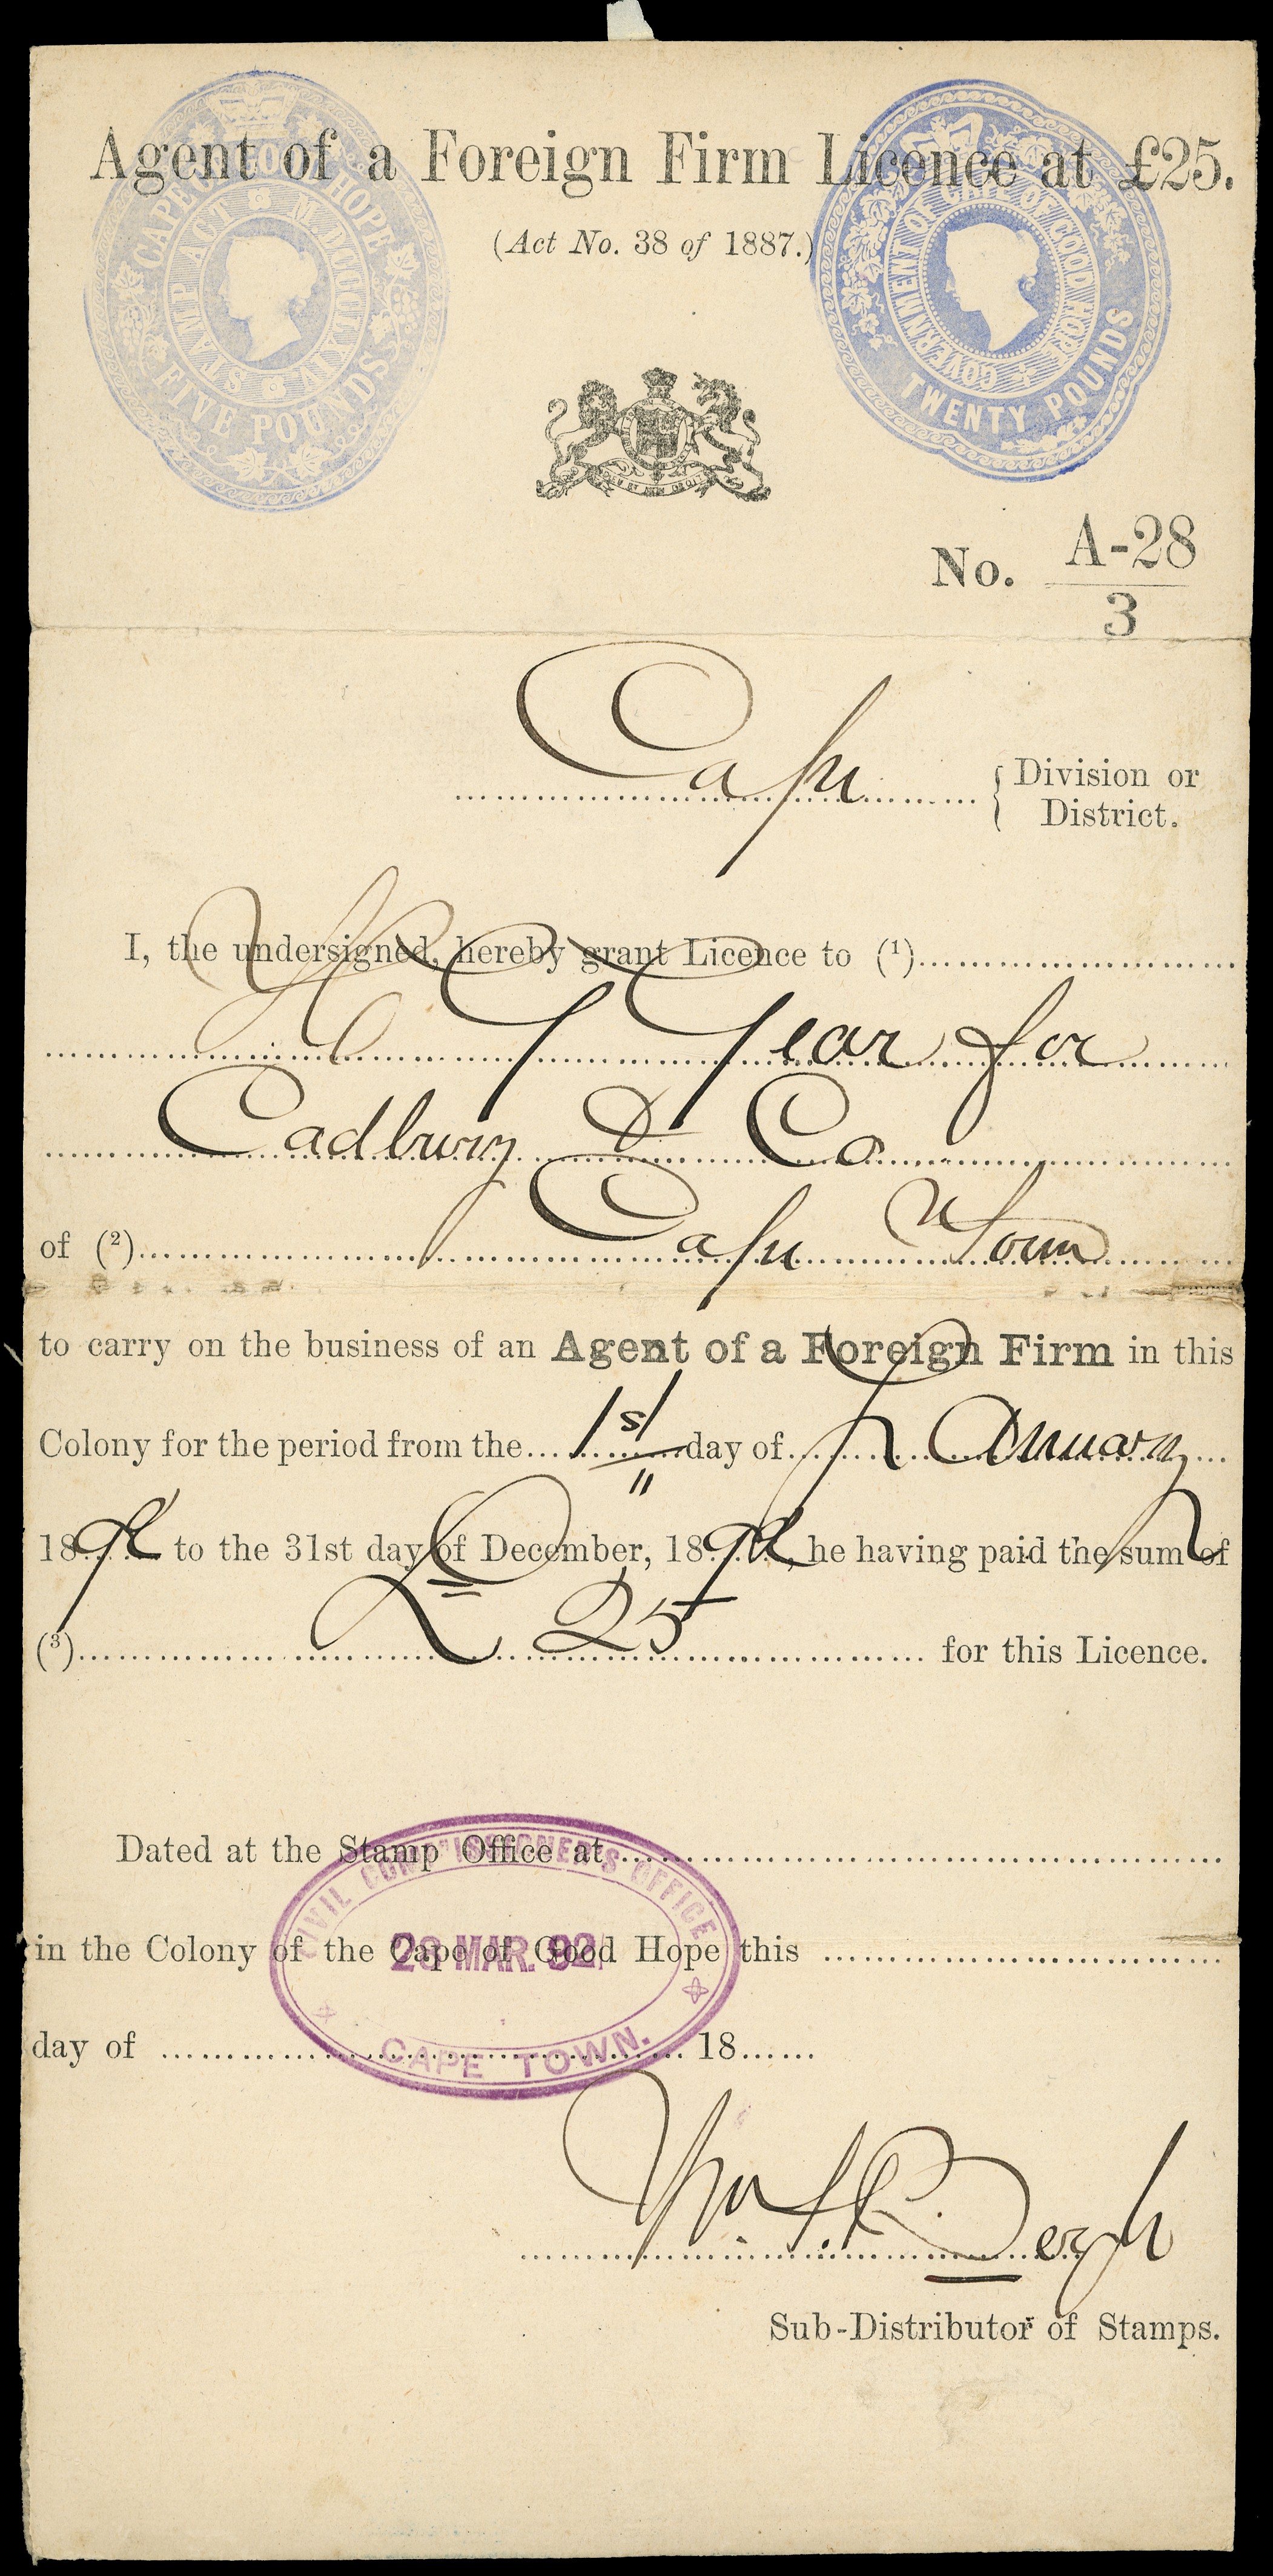 Agent of a Foreign Firm Licence at £25.
(Act No. 38 of 1887.)
CAPE OF GOOD HOPE
STAMP ACT M DCCCLXXIV
FIVE POUNDS
GOVERNMENT OF CAPE OF GOOD HOPE
TWENTY POUNDS
No. A-28
3
Cape { Division or
District.
I, the undersigned, hereby grant Licence to (1)
Year for
Cadbury & Co
of (2) Cape Town
to carry on the business of an Agent of a Foreign Firm in this
Colony for the period from the 1st day of January
1892 to the 31st day of December, 1892, he having paid the sum of
(3) £25 for this Licence.
Dated at the Stamp Office at
in the Colony of the Cape of Good Hope this
day of 18
CIVIL COMMISSIONER'S OFFICE
28 MAR. 92
CAPE TOWN.
Bergh
Sub-Distributor of Stamps.